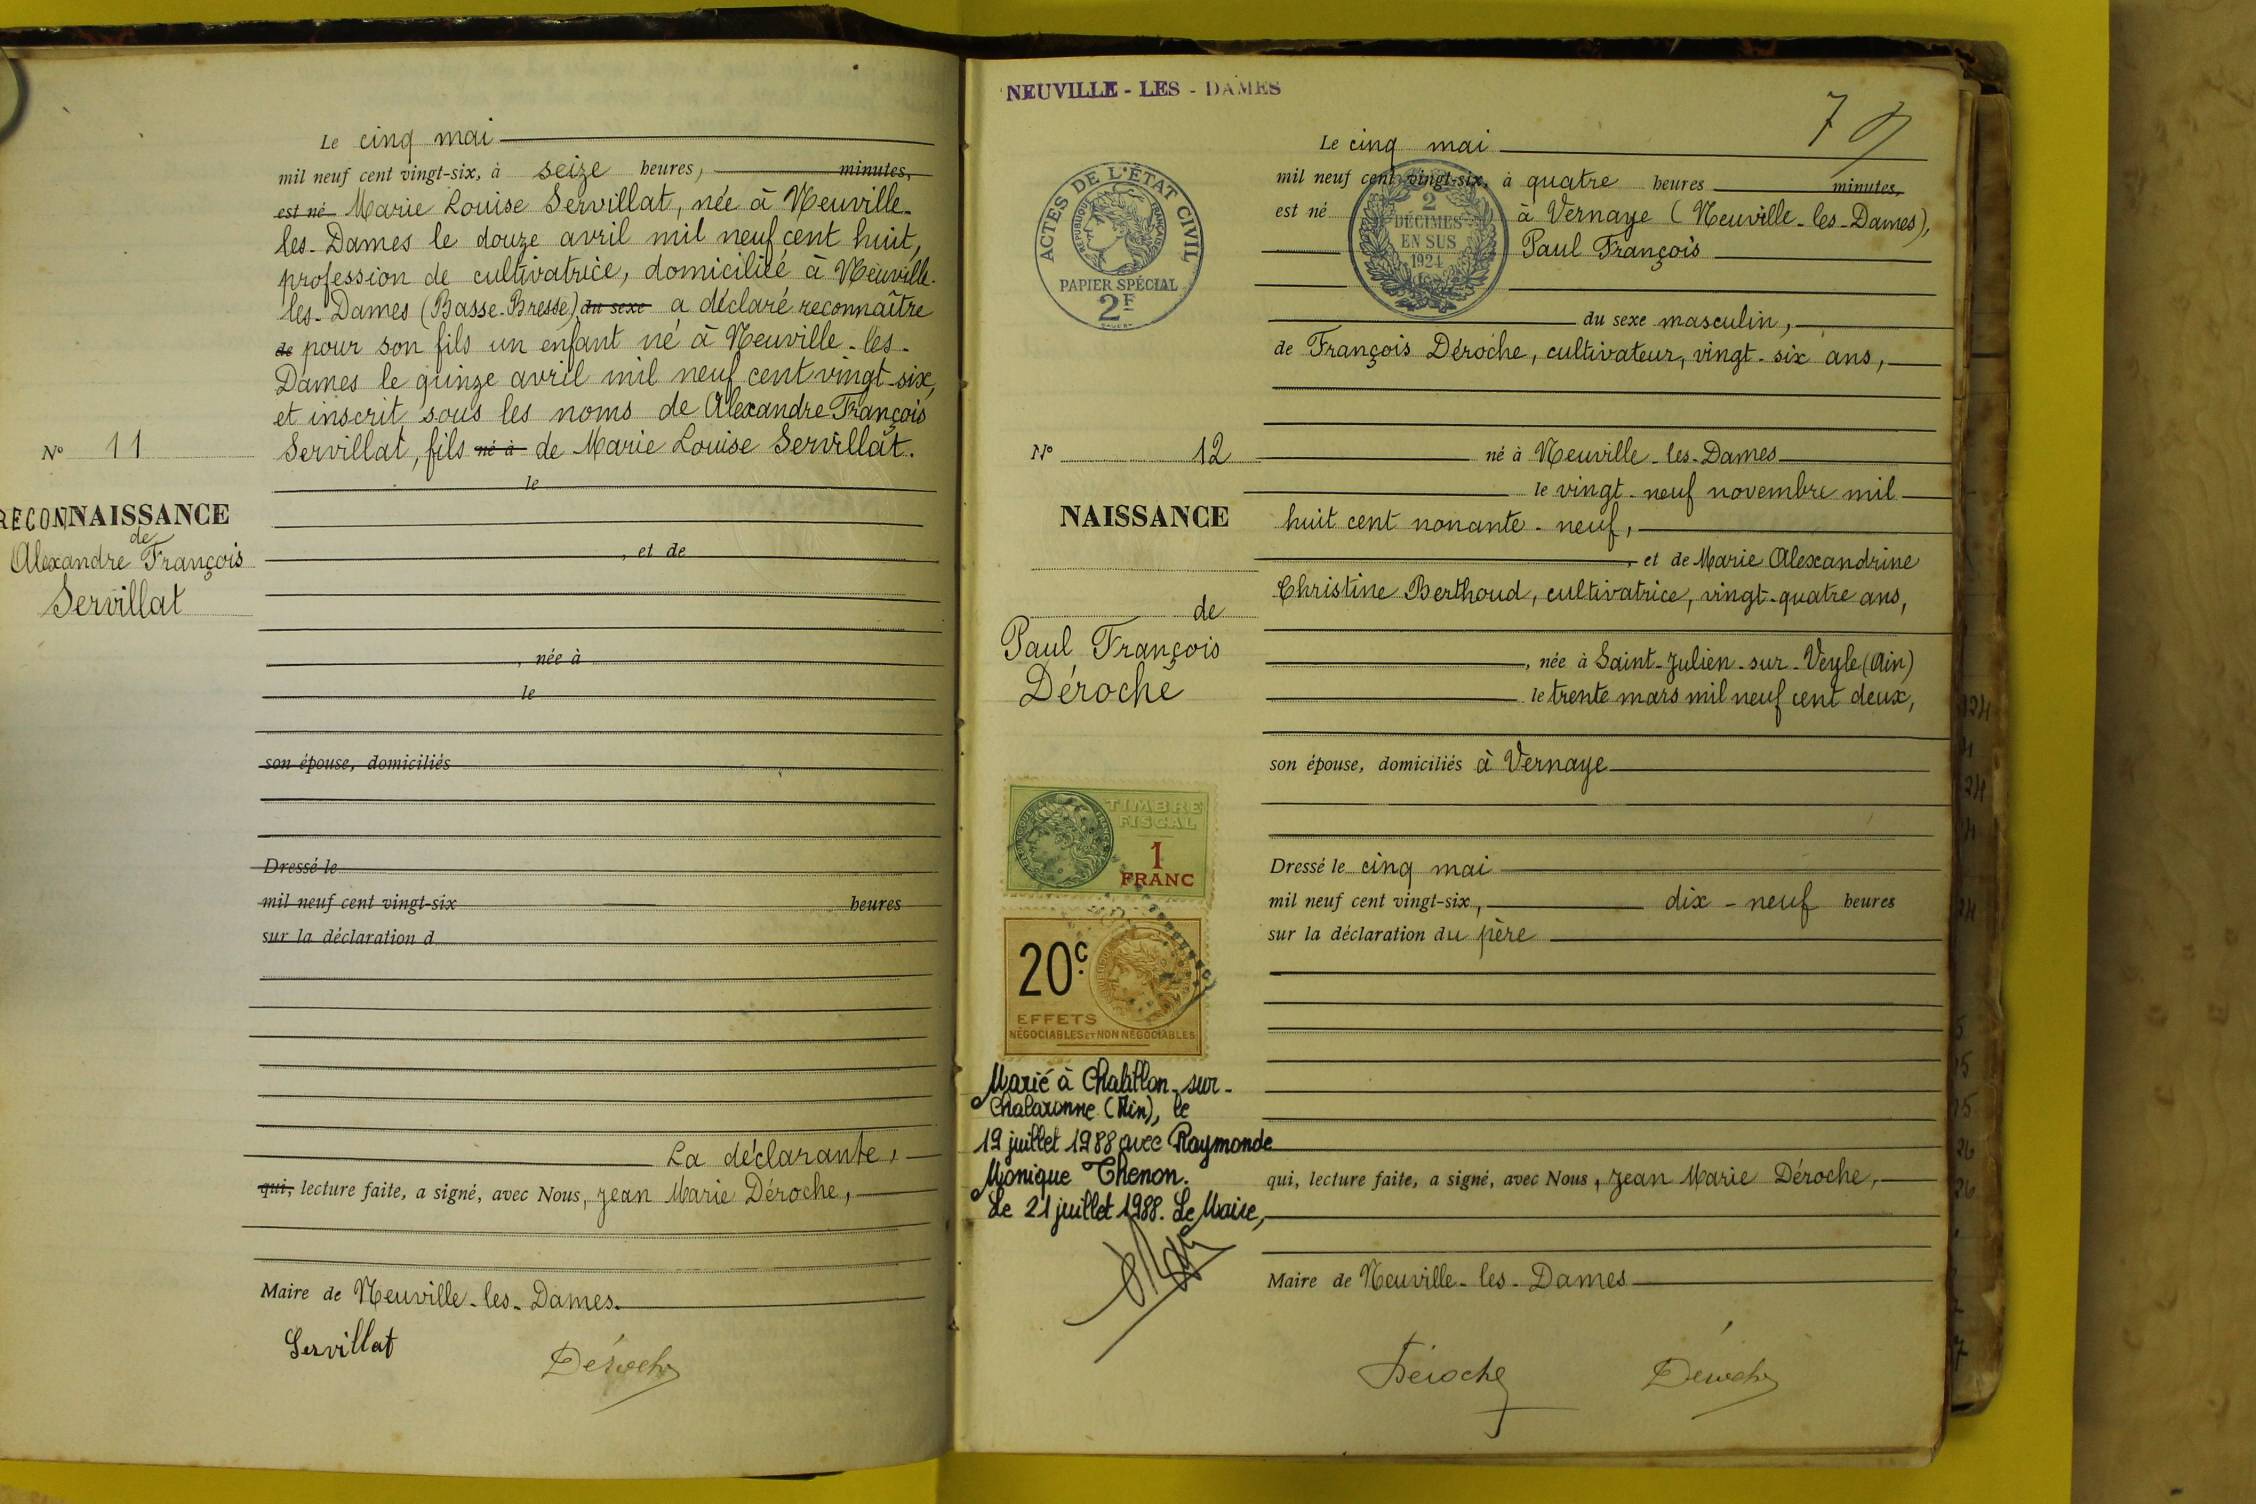 Le cinq mai
mil neuf cent vingt-six, à seize heures, minutes,
est né Marie Louise Servillat, née à Neuville-
les-Dames le douze avril mil neuf cent huit,
profession de cultivatrice, domiciliée à Neuville-
les-Dames (Basse-Bresse) du sexe a déclaré reconnaître
de pour son fils un enfant né à Neuville-les-
Dames le quinze avril mil neuf cent vingt-six,
et inscrit sous les noms de Alexandre François
Servillat, fils né à de Marie Louise Servillat.
le
, et de
, née à
le
son épouse, domiciliés
Dressé le
mil neuf cent vingt-six heures
sur la déclaration d
La déclarante,
qui, lecture faite, a signé, avec Nous, Jean Marie Déroche,
Maire de Neuville-les-Dames.
Servillat Déroche
N° 11
RECONNAISSANCE
de
Alexandre François
Servillat
NEUVILLE - LES - DAMES
7
ACTES DE L'ÉTAT CIVIL
RÉPUBLIQUE FRANÇAISE
PAPIER SPÉCIAL
2F
2
DÉCIMES
EN SUS
1924
Le cinq mai
mil neuf cent vingt-six, à quatre heures minutes,
est né à Vernaye (Neuville-les-Dames),
Paul François
du sexe masculin,
de François Déroche, cultivateur, vingt-six ans,
né à Neuville-les-Dames
le vingt-neuf novembre mil
huit cent nonante-neuf,
, et de Marie Alexandrine
Christine Berthoud, cultivatrice, vingt-quatre ans,
, née à Saint-Julien-sur-Veyle (Ain)
le trente mars mil neuf cent deux,
son épouse, domiciliés à Vernaye
Dressé le cinq mai
mil neuf cent vingt-six, dix-neuf heures
sur la déclaration du père
qui, lecture faite, a signé, avec Nous, Jean Marie Déroche,
Maire de Neuville-les-Dames
Déroche Déroche
N° 12
NAISSANCE
de
Paul François
Déroche
TIMBRE
FISCAL
1
FRANC
20c.
EFFETS
NÉGOCIABLES ET NON NÉGOCIABLES
Marié à Chatillon-sur-
Chalaronne (Ain), le
19 juillet 1988 avec Raymonde
Monique Thenon.
Le 21 juillet 1988. Le Maire,